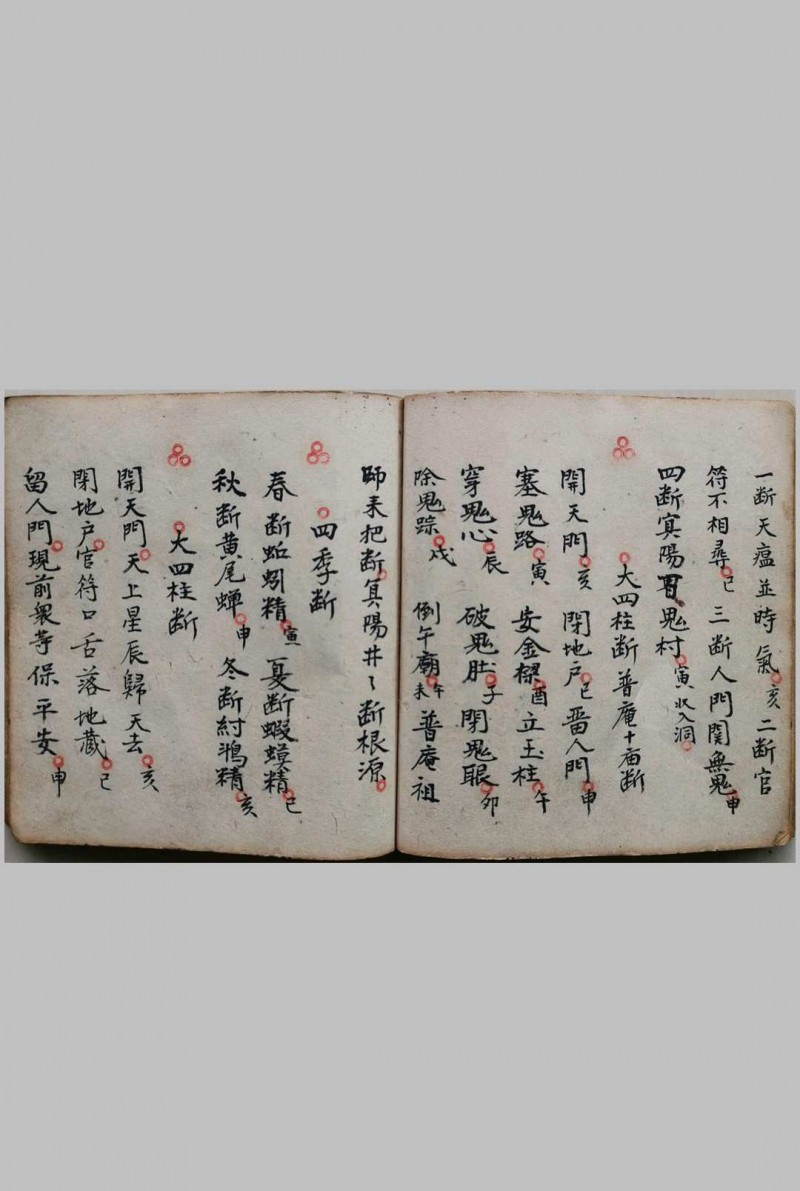 一断天瘟並時氣亥二断官
符不相尋巳三断人門関無鬼申
四断寘陽鬼村寅收入洞
大四柱断普庵十庙断
開天門亥閉地户巳畱人門申
塞鬼路寅安金樑酉立玉柱午
穿鬼心辰破鬼肚子閉鬼眼卯
除鬼踪戌倒午廟未午普庵祖
師来把断寘陽井〻断根源
四季断
春断蚯蚓精寅夏断蝦蟆精巳
秋断黄尾蟬申冬断紂鴉精亥
大四柱断
開天門天上星辰歸天去亥
閉地户官符口舌落地藏巳
留人門現前衆等保平安申